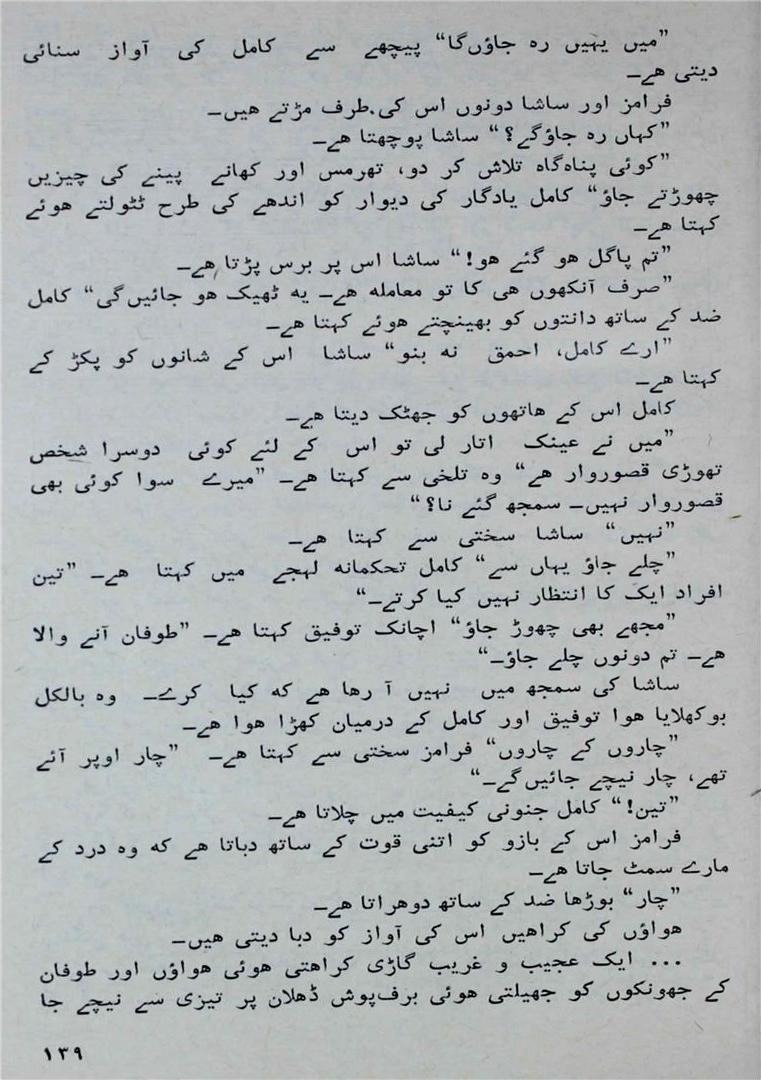 ”میں یہیں رہ جاؤں گا“ پیچھے سے کامل کی آواز سنائی
دیتی ھے۔
فرامز اور ساشا دونوں اس کی طرف مڑتے ھیں۔
”کہاں رہ جاؤگے؟“ ساشا پوچھتا ھے۔
”کوئی پناہ‌گاہ تلاش کر دو، تھرمس اور کھانے پینے کی چیزیں
چھوڑتے جاؤ“ کامل یادگار کی دیوار کو اندھے کی طرح ٹٹولتے ھوئے
کہتا ھے۔
”تم پاگل ھو گئے ھو!“ ساشا اس پر برس پڑتا ھے۔
”صرف آنکھوں ھی کا تو معاملہ ھے۔ یہ ٹھیک ھو جائیں گی“ کامل
ضد کے ساتھ دانتوں کو بھینچتے ھوئے کہتا ھے۔
”ارے کامل، احمق نہ بنو“ ساشا اس کے شانوں کو پکڑ کے
کہتا ھے۔
کامل اس کے ھاتھوں کو جھٹک دیتا ھے۔
”میں نے عینک اتار لی تو اس کے لئے کوئی دوسرا شخص
تھوڑی قصوروار ھے“ وہ تلخی سے کہتا ھے۔ ”میرے سوا کوئی بھی
قصوروار نہیں۔ سمجھ گئے نا؟“
”نہیں“ ساشا سختی سے کہتا ھے۔
”چلے جاؤ یہاں سے“ کامل تحکمانہ لہجے میں کہتا ھے۔ ”تین
افراد ایک کا انتظار نہیں کیا کرتے۔“
”مجھے بھی چھوڑ جاؤ“ اچانک توفیق کہتا ھے۔ ”طوفان آنے والا
ھے۔ تم دونوں چلے جاؤ۔“
ساشا کی سمجھ میں نہیں آ رھا ھے کہ کیا کرے۔ وہ بالکل
بوکھلایا ھوا توفیق اور کامل کے درمیان کھڑا ھوا ھے۔
”چاروں کے چاروں“ فرامز سختی سے کہتا ھے۔ ”چار اوپر آئے
تھے، چار نیچے جائیں گے۔“
”تین!“ کامل جنونی کیفیت میں چلاتا ھے۔
فرامز اس کے بازو کو اتنی قوت کے ساتھ دباتا ھے کہ وہ درد کے
مارے سمٹ جاتا ھے۔
”چار“ بوڑھا ضد کے ساتھ دوھراتا ھے۔
ھواؤں کی کراھیں اس کی آواز کو دبا دیتی ھیں۔
... ایک عجیب و غریب گاڑی کراھتی ھوئی ھواؤں اور طوفان
کے جھونکوں کو جھیلتی ھوئی برف‌پوش ڈھلان پر تیزی سے نیچے جا
۱۳۹